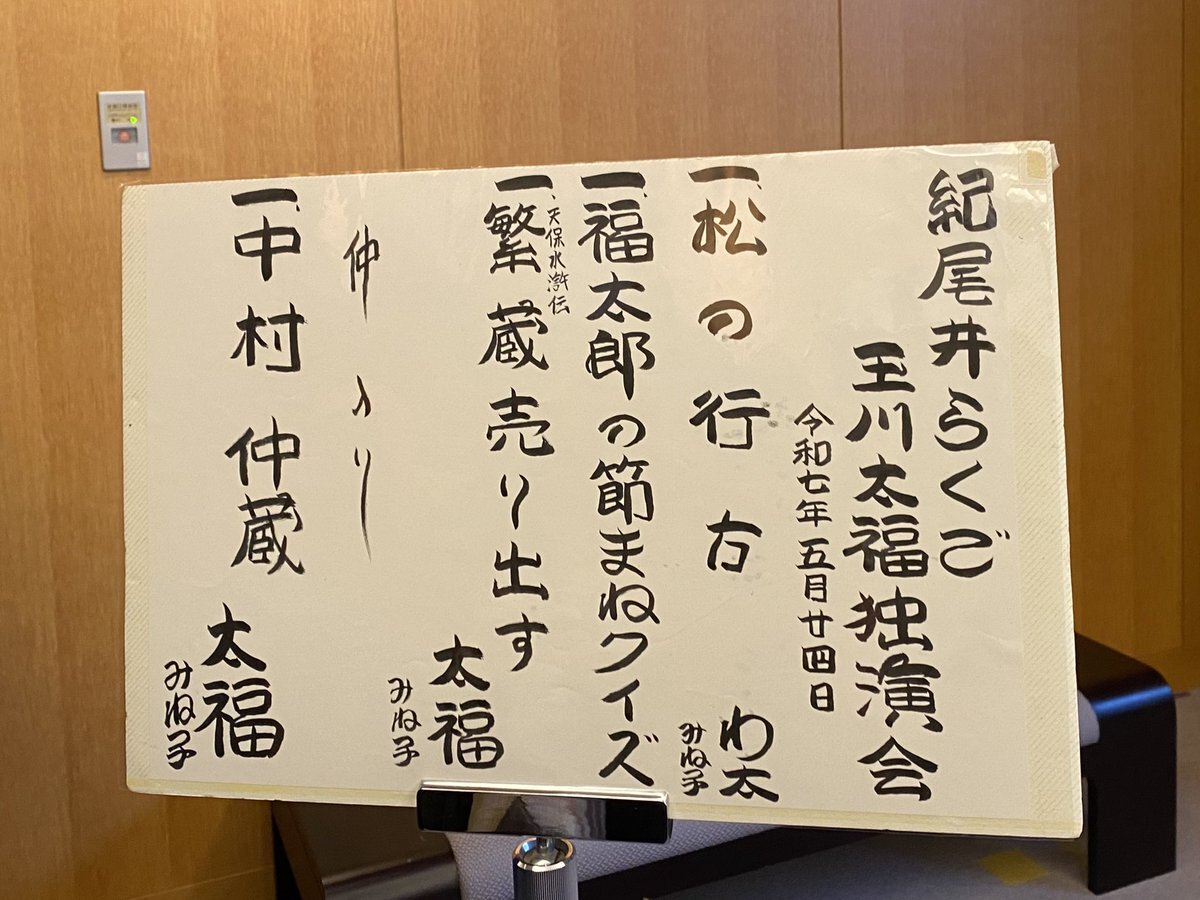 紀尾井らくご
玉川太福独演会
令和七年五月廿四日
一、松の行方
わ太
みね子
一、福太郎の節まねクイズ
一、天保水滸伝
繁蔵売り出す
太福
みね子
仲入り
一、中村仲蔵
太福
みね子